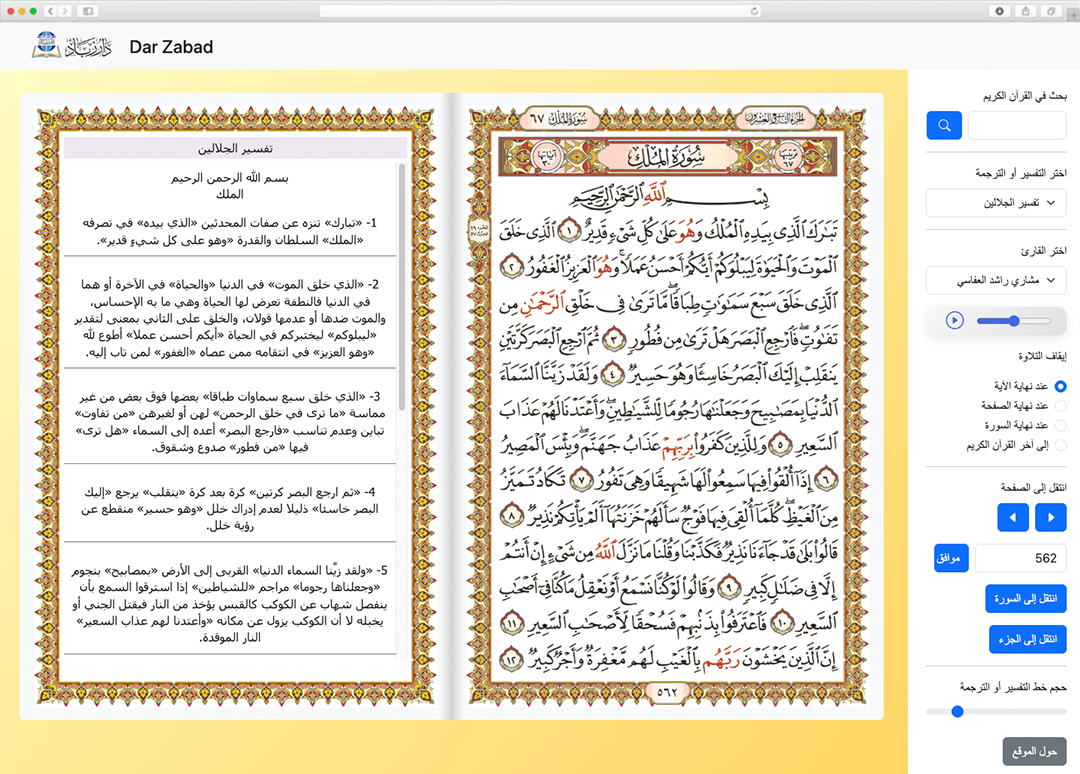 دار زباد
Dar Zabad
سورة الملك ٦٧
الجزء التاسع والعشرون
رتبتها ٦٧
سُورَةُ المُلْكِ
آياتها ٣٠
بِسْمِ اللَّهِ الرَّحْمَٰنِ الرَّحِيمِ
تَبَارَكَ الَّذِي بِيَدِهِ الْمُلْكُ وَهُوَ عَلَىٰ كُلِّ شَيْءٍ قَدِيرٌ ١ الَّذِي خَلَقَ
الْمَوْتَ وَالْحَيَوٰةَ لِيَبْلُوَكُمْ أَيُّكُمْ أَحْسَنُ عَمَلًا ۚ وَهُوَ الْعَزِيزُ الْغَفُورُ ٢
الَّذِي خَلَقَ سَبْعَ سَمَٰوَٰتٍ طِبَاقًا ۖ مَّا تَرَىٰ فِي خَلْقِ الرَّحْمَٰنِ مِن
تَفَٰوُتٍ ۖ فَارْجِعِ الْبَصَرَ هَلْ تَرَىٰ مِن فُطُورٍ ٣ ثُمَّ ارْجِعِ الْبَصَرَ كَرَّتَيْنِ
يَنقَلِبْ إِلَيْكَ الْبَصَرُ خَاسِئًا وَهُوَ حَسِيرٌ ٤ وَلَقَدْ زَيَّنَّا السَّمَآءَ
الدُّنْيَا بِمَصَٰبِيحَ وَجَعَلْنَٰهَا رُجُومًا لِّلشَّيَٰطِينِ ۖ وَأَعْتَدْنَا لَهُمْ عَذَابَ
السَّعِيرِ ٥ وَلِلَّذِينَ كَفَرُوا بِرَبِّهِمْ عَذَابُ جَهَنَّمَ ۖ وَبِئْسَ الْمَصِيرُ
٦ إِذَآ أُلْقُوا فِيهَا سَمِعُوا لَهَا شَهِيقًا وَهِيَ تَفُورُ ٧ تَكَادُ تَمَيَّزُ
مِنَ الْغَيْظِ ۖ كُلَّمَآ أُلْقِيَ فِيهَا فَوْجٌ سَأَلَهُمْ خَزَنَتُهَآ أَلَمْ يَأْتِكُمْ نَذِيرٌ ٨
قَالُوا بَلَىٰ قَدْ جَآءَنَا نَذِيرٌ فَكَذَّبْنَا وَقُلْنَا مَا نَزَّلَ اللَّهُ مِن شَيْءٍ إِنْ أَنتُمْ
إِلَّا فِي ضَلَٰلٍ كَبِيرٍ ٩ وَقَالُوا لَوْ كُنَّا نَسْمَعُ أَوْ نَعْقِلُ مَا كُنَّا فِيٓ أَصْحَٰبِ
السَّعِيرِ ١٠ فَاعْتَرَفُوا بِذَنبِهِمْ فَسُحْقًا لِّأَصْحَٰبِ السَّعِيرِ ١١
إِنَّ الَّذِينَ يَخْشَوْنَ رَبَّهُم بِالْغَيْبِ لَهُم مَّغْفِرَةٌ وَأَجْرٌ كَبِيرٌ ١٢
٥٦٢
تفسير الجلالين
بسم الله الرحمن الرحيم
الملك
1- «تبارك» تنزه عن صفات المحدثين «الذي بيده» في تصرفه
«الملك» السلطان والقدرة «وهو على كل شيءٍ قدير».
2- «الذي خلق الموت» في الدنيا «والحياة» في الآخرة أو هما
في الدنيا فالنطفة تعرض لها الحياة وهي ما به الإحساس،
والموت ضدها أو عدمها قولان، والخلق على الثاني بمعنى لتقدير
«ليبلوكم» ليختبركم في الحياة «أيكم أحسن عملا» أطوع لله
«وهو العزيز» في انتقامه ممن عصاه «الغفور» لمن تاب إليه.
3- «الذي خلق سبع سماوات طباقا» بعضها فوق بعض من غير
مماسة «ما ترى في خلق الرحمن» لهن أو لغيرهن «من تفاوت»
تباين وعدم تناسب «فارجع البصر» أعده إلى السماء «هل ترى»
فيها «من فطور» صدوع وشقوق.
4- «ثم ارجع البصر كرتين» كرة بعد كرة «ينقلب» يرجع «إليك
البصر خاسئا» ذليلا لعدم إدراك خلل «وهو حسير» منقطع عن
رؤية خلل.
5- «ولقد زيَّنا السماء الدنيا» القربى إلى الأرض «بمصابيح» بنجوم
«وجعلناها رجوما» مراجم «للشياطين» إذا استرقوا السمع بأن
ينفصل شهاب عن الكوكب كالقبس يؤخذ من النار فيقتل الجني أو
يخبله لا أن الكوكب يزول عن مكانه «وأعتدنا لهم عذاب السعير»
النار الموقدة.
بحث في القرآن الكريم
اختر التفسير أو الترجمة
تفسير الجلالين
اختر القارئ
مشاري راشد العفاسي
إيقاف التلاوة
عند نهاية الآية
عند نهاية الصفحة
عند نهاية السورة
إلى آخر القرآن الكريم
انتقل إلى الصفحة
562
موافق
انتقل إلى السورة
انتقل إلى الجزء
حجم خط التفسير أو الترجمة
حول الموقع